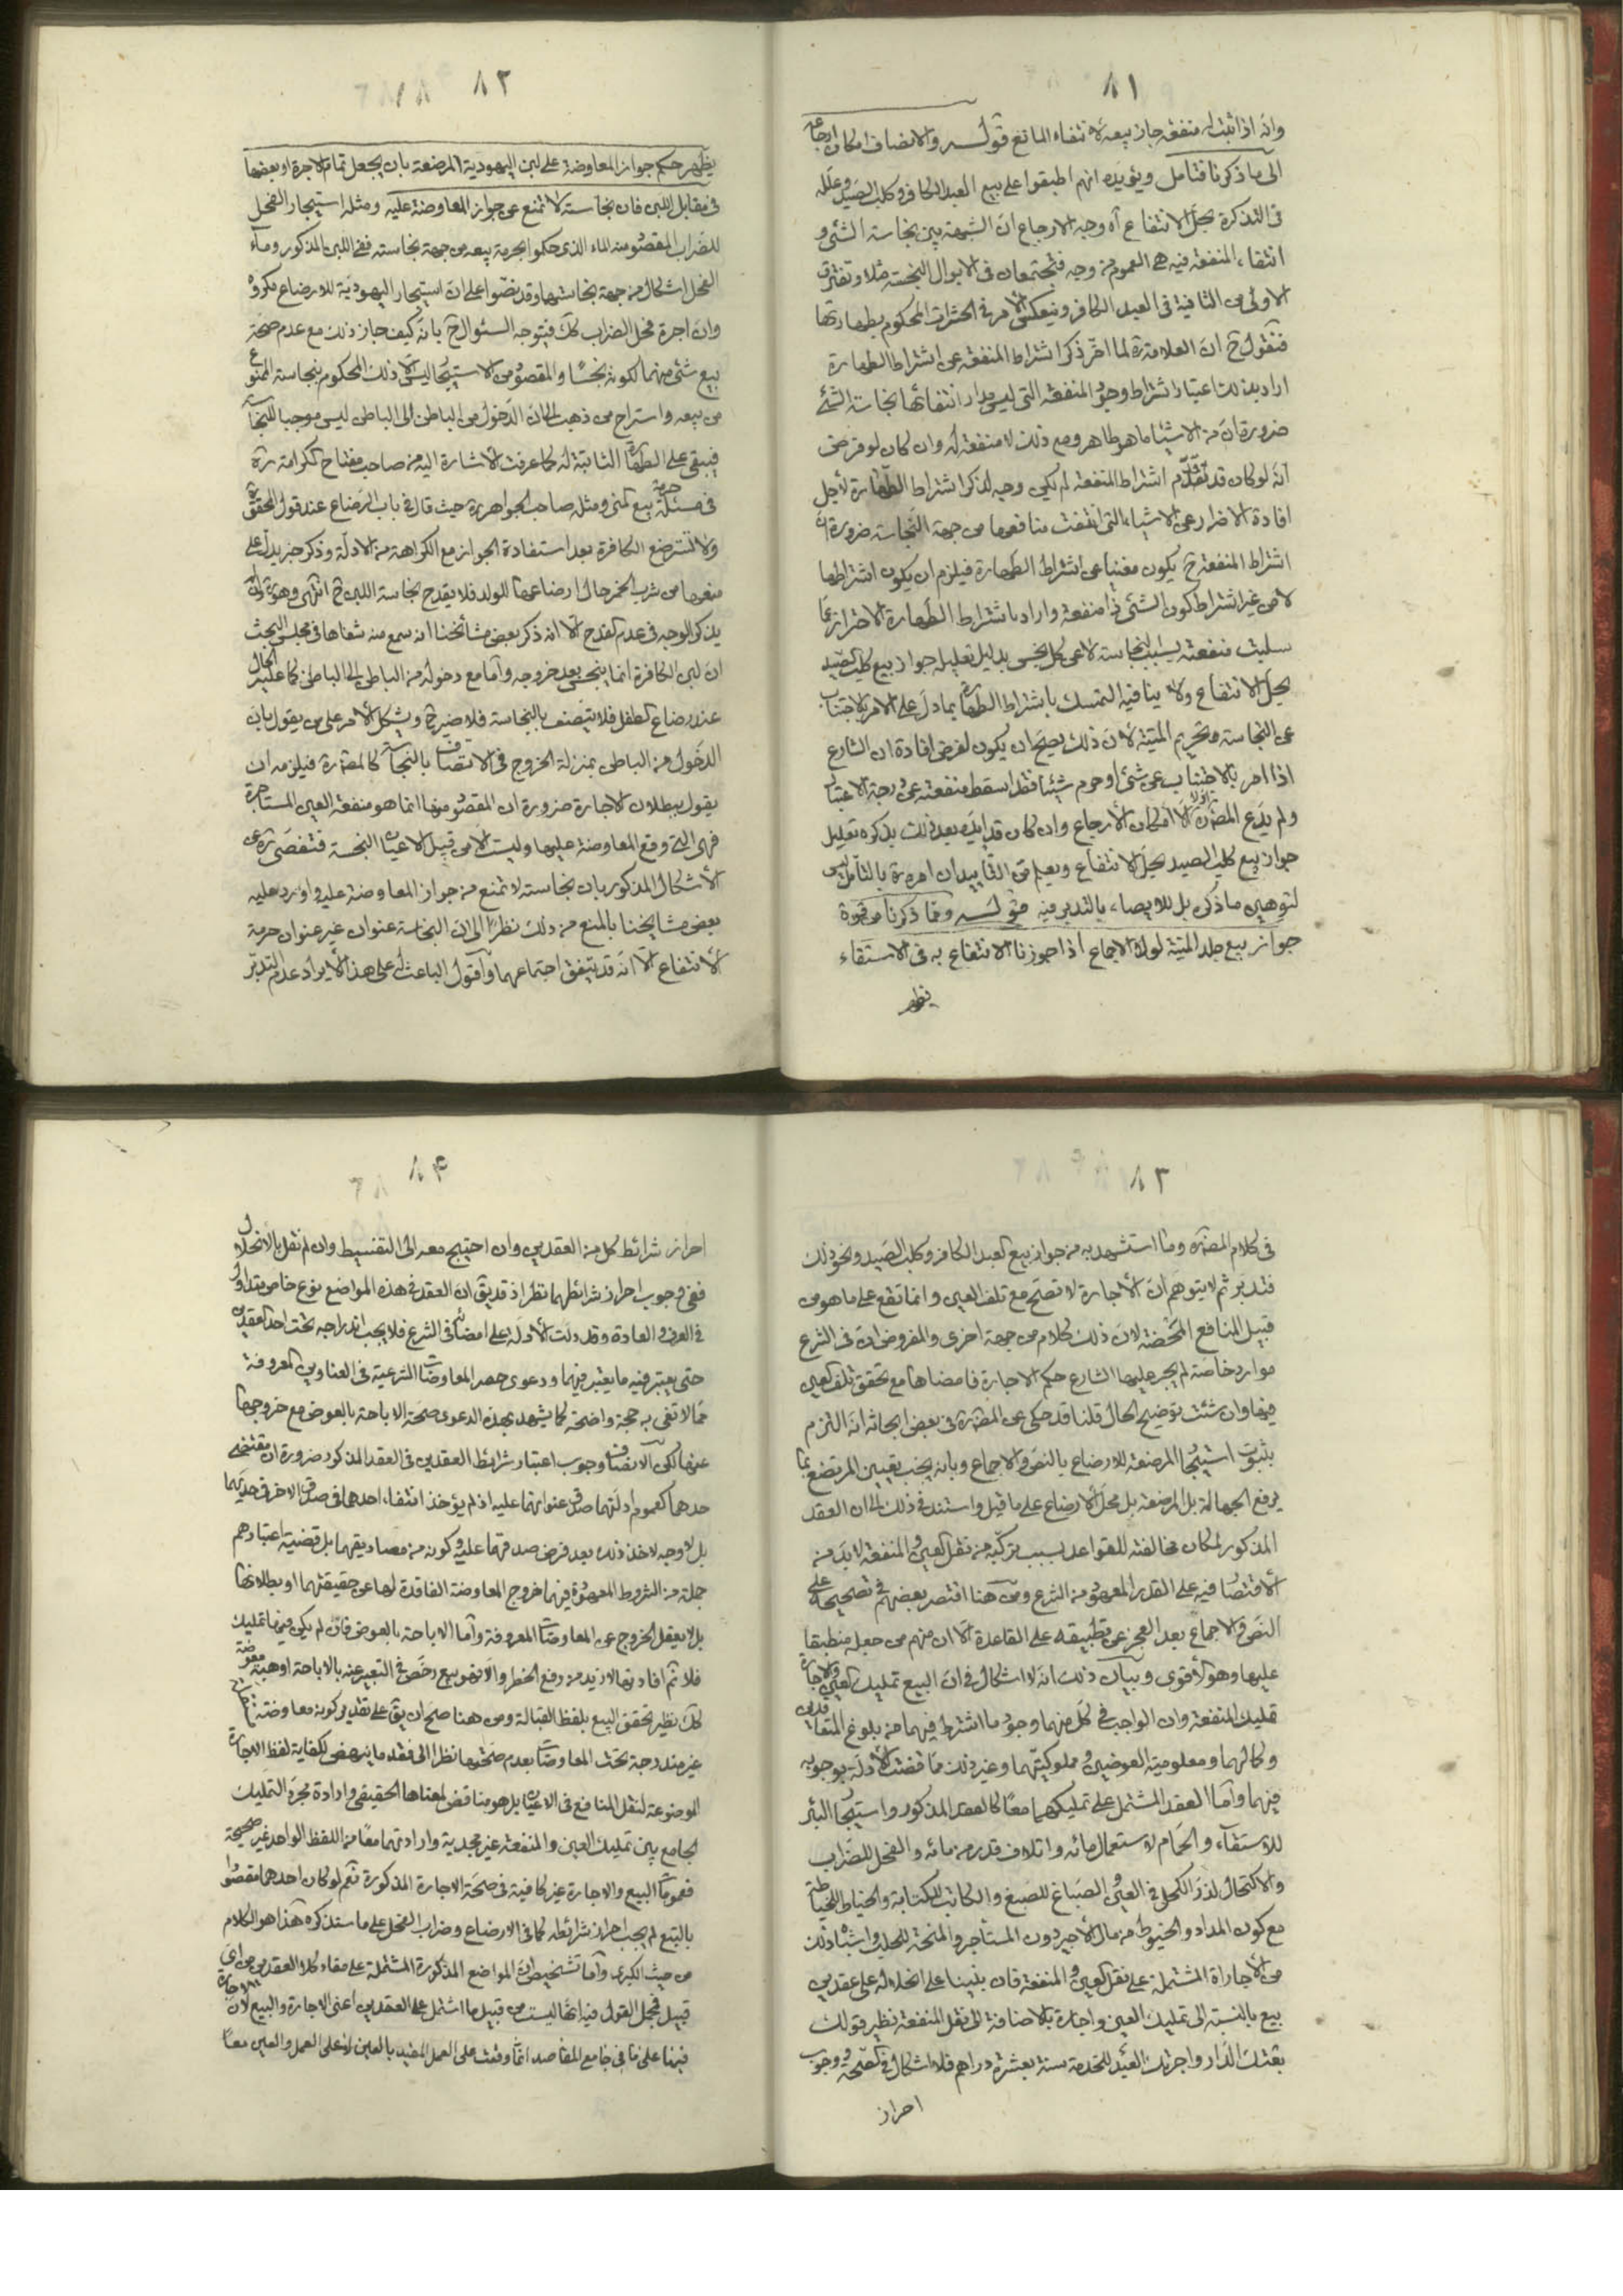 ٨١
وانه اذا ثبت له منفعة جاز بيعه لانتفاء المانع قوله والانصاف امكان ارجاعه
الى ما ذكرنا فتامل ويؤيده انهم اطبقوا على بيع العبد الكافر وكلب الصيد وعلله
فى التذكرة بحل الانتفاع آه وجه الارجاع ان الشبهة بين نجاسة الشئ و
انتفاء المنفعة فيه هى العموم من وجه فتجتمعان فى الابوال النجسة مثلا وتفترق
الاولى من الثانية فى العبد الكافر وينعكس الامر فى الحشرات المحكوم بطهارتها
فنقول ح ان العلامة ره لما اخر ذكر اشتراط المنفعة عن اشتراط الطهارة
اراد بذلك اعتبار اشتراط وجود المنفعة التى ليس مدار انتفائها نجاسة الشئ
ضرورة ان من الاشياء ما هو طاهر ومع ذلك لا منفعة له وان كان لو فرض
انه لو كان قد تقدم اشتراط المنفعة لم يكن وجه لذكر اشتراط الطهارة لاجل
افادة الاحتراز عن الاشياء التى انتفت منافعها من جهة النجاسة ضرورة ان
اشتراط المنفعة ح يكون مغنيا عن اشتراط الطهارة فيلزم ان يكون اشتراطها
لا من غير اشتراط كون الشئ ذا منفعة واراد باشتراط الطهارة الاحتراز عما
سلبت منفعته بسبب النجاسة لا عن كل نجس بدليل تعليله جواز بيع كلب الصيد
بحل الانتفاع ولا ينافيه التمسك باشتراط الطهارة بما دل على الامر بالاجتناب
عن النجاسة وتحريم الميتة لان ذلك يصح ان يكون لغرض افادة ان الشارع
اذا امر بالاجتناب عن شئ او حرم شيئا فقد اسقط منفعته عن درجة الاعتبار
ولم يدع المصنف ره اولا الا امكان الارجاع وان كان قد ايده بعد ذلك بذكره تعليل
جواز بيع كلب الصيد بحل الانتفاع ويعلم من التأييد ان امره ره بالتأمل ليس
لتوهين ما ذكره بل للايصاء بالتدبر فيه قوله ومما ذكرنا من قوة
جواز بيع جلد الميتة لولا الاجماع اذا جوزنا الانتفاع به فى الاستقاء
يظهر
٨٢
يظهر حكم جواز المعاوضة على لبن اليهودية المرضعة بان يجعل تمام الاجرة او بعضها
فى مقابل اللبن فان نجاسته لا تمنع عن جواز المعاوضة عليه ومثله استيجار الفحل
للضراب المقصود منه الماء الذى حكموا بحرمة بيعه من جهة نجاسته ففى اللبن المذكور وماء
الفحل اشكال من جهة نجاستهما وقد نصوا على ان استيجار اليهودية للارضاع مكروه
وان اجرة فحل الضراب كك فيتوجه السئوال ح بانه كيف جاز ذلك مع عدم صحة
بيع شئ منهما لكونه نجسا والمقصود من الاستيجار ليس الا ذلك المحكوم بنجاسته الممنوع
من بيعه واستراح من ذهب الى ان الدخول من الباطن الى الباطن ليس موجبا للنجاسة
فيبقى على الطهارة الثابتة له كما عرفت الاشارة اليه من صاحب مفتاح الكرامة ره
فى مسئلة حرمة بيع المنى ومثله صاحب الجواهر ره حيث قال فى باب الرضاع عند قول المحقق ره
ولا تسترضع الكافرة بعد استفادة الجواز مع الكراهة من الادلة وذكر خبر يدل على
منعها من شرب الخمر حال ارضاعها للولد فلا يقدح نجاسة اللبن ح انتهى وهو ره وان لم
يذكر الوجه فى عدم القدح الا انه ذكر بعض مشائخنا انه سمع منه شفاها فى مجلس البحث
ان لبن الكافرة انما ينجس بعد خروجه وأما مع دخوله من الباطن الى الباطن كما عليه الحال
عند رضاع الطفل فلا يتصف بالنجاسة فلا ضير ح ويشكل الامر على من يقول بان
الدخول من الباطن بمنزلة الخروج فى الاتصاف بالنجاسة كالمصنف ره فيلزمه ان
يقول ببطلان الاجارة ضرورة ان المقصود منها انما هو منفعة العين المستأجرة
فهى التى وقع المعاوضة عليها وليست الا من قبيل الاعيان النجسة فتفصى ره عن
الاشكال المذكور بان نجاسته لا تمنع من جواز المعاوضة عليه واورد عليه
بعض مشايخنا بالمنع من ذلك نظرا الى ان النجاسة عنوان غير عنوان حرمة
الانتفاع الا انه قد يتفق اجتماعهما وأقول الباعث له على هذا الايراد عدم التدبر
٨٣
فى كلام المصنف ره وما استشهد به من جواز بيع العبد الكافر وكلب الصيد ونحو ذلك
فتدبر ثم لا يتوهم ان الاجارة لا تصح مع تلف العين وانما تقع على ما هو من
قبيل المنافع المحضة لان ذلك كلام من جهة اخرى والمفروض ان فى الشرع
موارد خاصة لم يجر عليها الشارع حكم الاجارة فامضاها مع تحقق تلف العين
فيها وان شئت توضيح الحال قلنا قد حكى عن المصنف ره فى بعض ابحاثه انه التزم
بثبوت استيجار المرضعة للارضاع بالنص والاجماع وبانه يجب تعيين المرتضع بما
يرفع الجهالة بل المرضعة بل محل الارضاع على ما قيل واستند فى ذلك الى ان العقد
المذكور لمكان مخالفته للقواعد بسبب تركبه من نقل العين والمنفعة لا بد من
الاقتصار فيه على القدر المعهود من الشرع ومن هنا اقتصر بعضهم فى تصحيحه على
النص والاجماع بعد العجز عن تطبيقه على القاعدة الا ان منهم من جعله منطبقا
عليها وهو الاقوى وبيان ذلك انه لا اشكال فى ان البيع تمليك العين والاجارة
تمليك المنفعة وان الواجب فى كل منهما وجود ما اشترط فيهما من بلوغ المتعاقدين
وكمالهما ومعلومية العوضين ومملوكيتهما وغير ذلك مما قضت الادلة بوجوبه
فيهما وأما العقد المشتمل على تمليكهما معا كالعقد المذكور واستيجار البئر
للاستقاء والحمام لاستعمال مائه واتلاف قدر من مائه والفحل للضراب
والاكتحال لذر الكحل فى العين والصباغ للصبغ والكاتب للكتابة والخياط للخياطة
مع كون المداد والخيوط من مال الاجير دون المستأجر والمنحة للحلب واشباه ذلك
من الاجارات المشتملة على نقل العين والمنفعة فان بنينا على انحلاله على عقدين
بيع بالنسبة الى تمليك العين واجارة بالاضافة الى نقل المنفعة نظير قولك
بعتك الدار واجرتك العبد للخدمة سنة بعشرة دراهم فلا اشكال فى الصحة ووجوب
احراز
٨۴
احراز شرائط كل من العقدين وان احتيج معه الى التقسيط وان لم نقل بالانحلال
ففى وجوب احراز شرائطهما نظر اذ قد يق ان العقد فى هذه المواضع نوع خاص متداول
فى العرف والعادة وقد دلت الأدلة على امضائه فى الشرع فلا يجب اندراجه تحت احد العقدين
حتى يعتبر فيه ما يعتبر فيهما ودعوى حصر المعاوضات الشرعية فى العناوين المعروفة
مما لا تفى به حجة واضحة كما يشهد بهذه الدعوى صحة الاباحة بالعوض مع خروجها
عنها لكن الانصاف وجوب اعتبار شرائط العقدين فى العقد المذكور ضرورة ان مقتضى
حدهما كعموم ادلتهما صدق عنوانهما عليه اذ لم يؤخذ انتفاء احدهما فى صدق الاخر فى حديهما
بل لا وجه لاخذ ذلك بعد فرض صدقهما عليه وكونه من مصاديقهما بل قضية اعتبارهم
جملة من الشروط المعهودة فيهما خروج المعاوضة الفاقدة لها عن حقيقتهما او بطلانها
بل لا يعقل الخروج عن المعاوضات المعروفة وأما الاباحة بالعوض فان لم يكن فيها تمليك
فلا ثم افادتها لازيد من رفع الحظر والا فهو بيع رخص فى التعبير عنه بالاباحة او هبة معوضة
كك نظير تحقق البيع بلفظ القبالة ومن هنا صح ان يق على تقدير كونه معاوضة
غير مندرجة تحت المعاوضات بعدم صحتها نظرا الى فقد ما ينهض لكفاية لفظ الاجارة
الموضوعة لنقل المنافع فى الاعيان بل هو مناقض لمعناها الحقيقى وارادة مجرد التمليك
الجامع بين تمليك العين والمنفعة غير مجدية وارادتهما معا من اللفظ الواحد غير صحيحة
فعمومات البيع والاجارة غير كافية فى صحة الاجارة المذكورة نعم لو كان احدهما مقصودا
بالتبع لم يجب احراز شرائطه كما فى الارضاع وضراب الفحل على ما ستذكره هذا هو الكلام
من حيث الكبرى وأما تشخيص ان المواضع المذكورة المشتملة على مفاد كلا العقدين من اى
قبيل فمجمل القول فيه انها ليست من قبيل ما اشتمل على العقدين اعنى الاجارة والبيع لان الاجارة
فيها على ما فى جامع المقاصد انما وقعت على العمل المفيد بالعين لا على العمل والعين معا